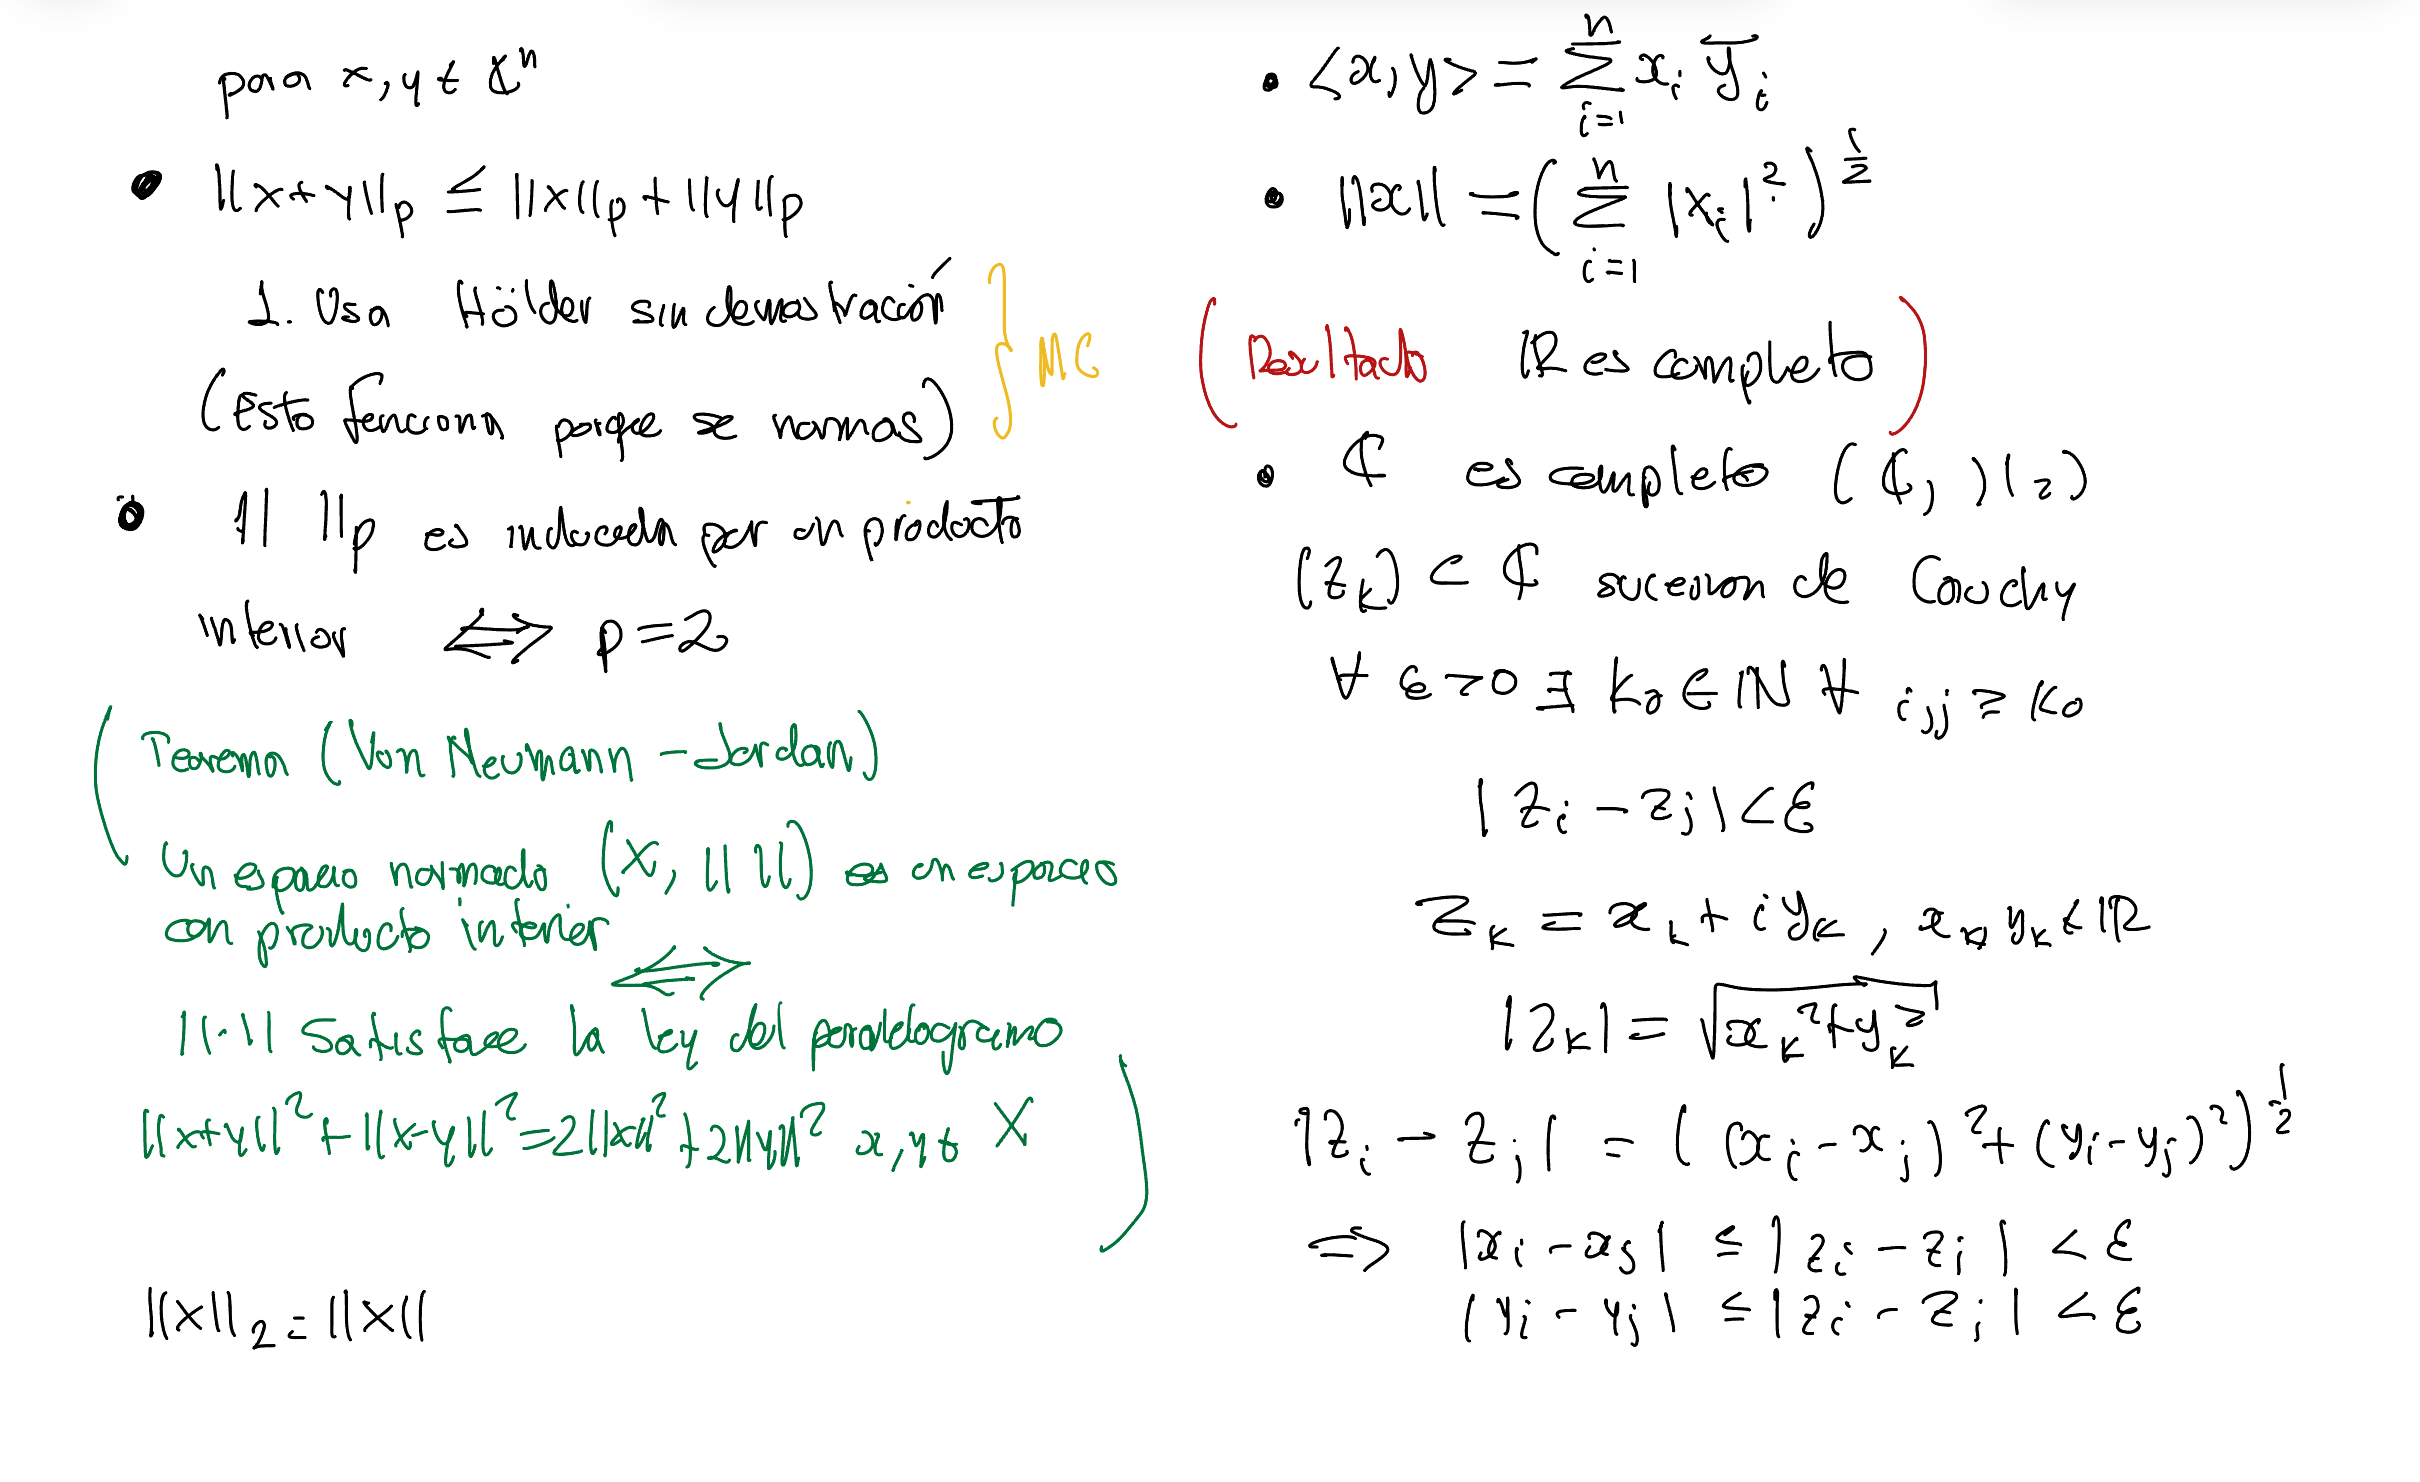 para x, y ∈ ℂⁿ
• ||x+y||ₚ ≤ ||x||ₚ + ||y||ₚ
1. Usa Hölder sin demostración
(Esto funciona porque se normas) } MC
• || ||ₚ es inducida por un producto
interior ⟺ p=2
(Teorema (Von Neumann - Jordan)
Un espacio normado (X, || ||) es un espacio
con producto interior
⟺
||·|| Satisface la ley del paralelogramo
||x+y||² + ||x-y||² = 2||x||² + 2||y||² x, y ∈ X)
||x||₂ = ||x||
• <x, y> = ∑ᵢ₌₁ⁿ xᵢ y̅ᵢ
• ||x|| = (∑ᵢ₌₁ⁿ |xᵢ|²)^½
(Resultado ℝ es completo)
• ℂ es completo (ℂ, | |₂)
(zₖ) ⊂ ℂ sucesion de Cauchy
∀ ε > 0 ∃ k₀ ∈ ℕ ∀ i, j ≥ k₀
|zᵢ - zⱼ| < ε
zₖ = xₖ + i yₖ, xₖ, yₖ ∈ ℝ
|zₖ| = √(xₖ² + yₖ²)
|zᵢ - zⱼ| = ((xᵢ - xⱼ)² + (yᵢ - yⱼ)²)^½
⟹ |xᵢ - xⱼ| ≤ |zᵢ - zⱼ| < ε
|yᵢ - yⱼ| ≤ |zᵢ - zⱼ| < ε